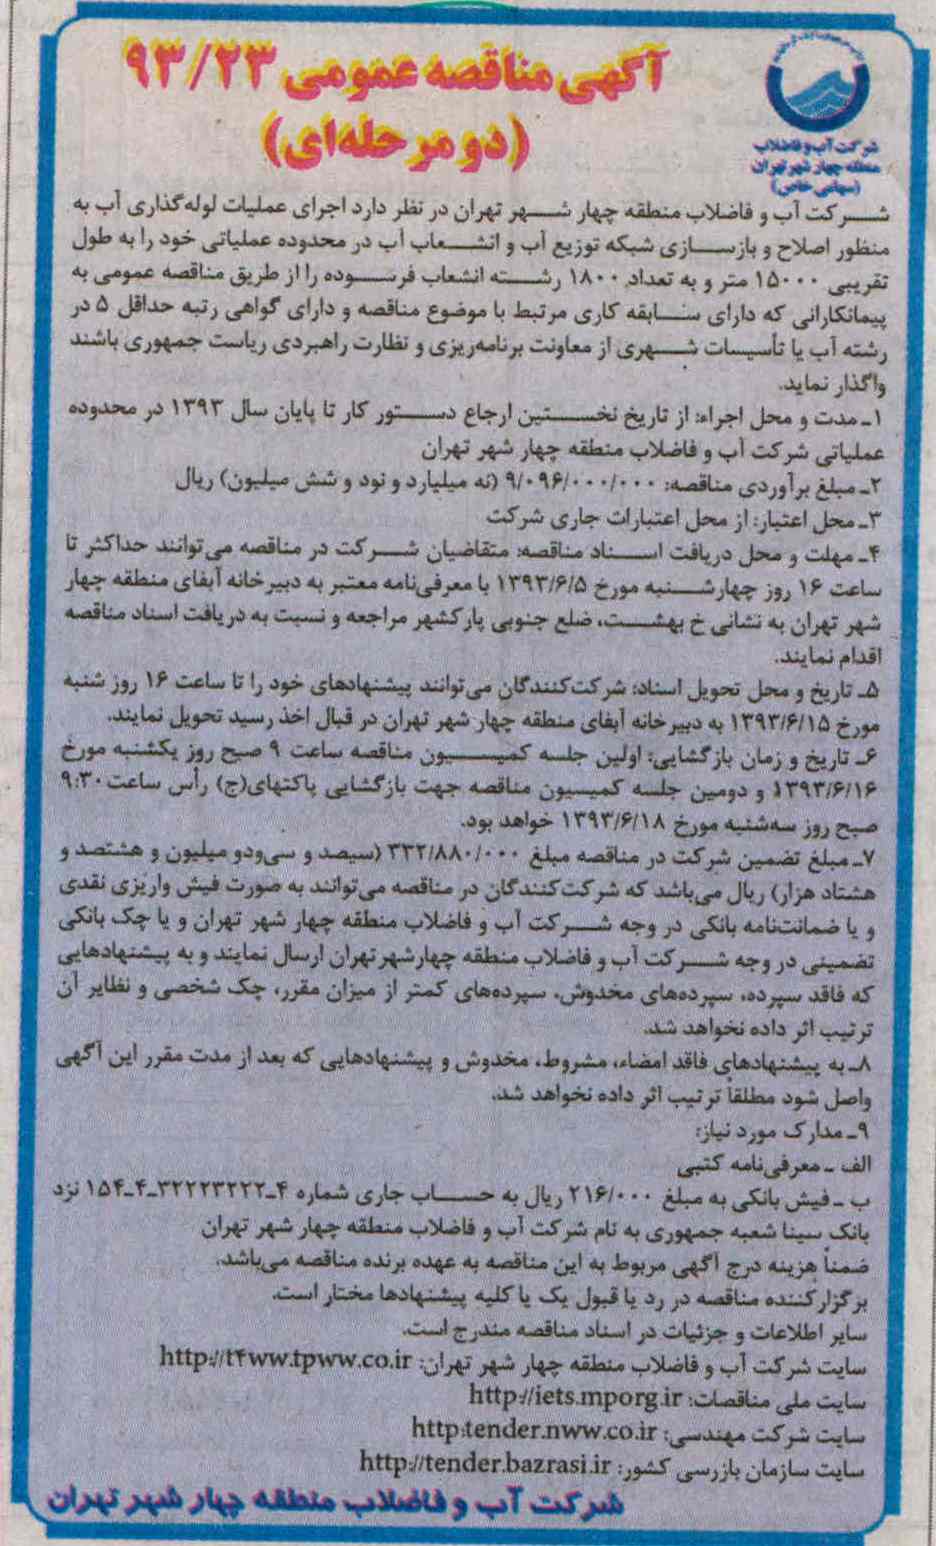 آگهی مناقصه عمومی ۹۳/۲۳
(دو مرحله‌ای)
شرکت آب و فاضلاب
منطقه چهار شهر تهران
(سهامی خاص)
شرکت آب و فاضلاب منطقه چهار شهر تهران در نظر دارد اجرای عملیات لوله‌گذاری آب به
منظور اصلاح و بازسازی شبکه توزیع آب و انشعاب آب در محدوده عملیاتی خود را به طول
تقریبی ۱۵۰۰۰ متر و به تعداد ۱۸۰۰ رشته انشعاب فرسوده را از طریق مناقصه عمومی به
پیمانکارانی که دارای سابقه کاری مرتبط با موضوع مناقصه و دارای گواهی رتبه حداقل ۵ در
رشته آب یا تأسیسات شهری از معاونت برنامه‌ریزی و نظارت راهبردی ریاست جمهوری باشند
واگذار نماید.
۱ـ مدت و محل اجراء: از تاریخ نخستین ارجاع دستور کار تا پایان سال ۱۳۹۳ در محدوده
عملیاتی شرکت آب و فاضلاب منطقه چهار شهر تهران
۲ـ مبلغ برآوردی مناقصه: ۹/۰۹۶/۰۰۰/۰۰۰ (نه میلیارد و نود و شش میلیون) ریال
۳ـ محل اعتبار: از محل اعتبارات جاری شرکت
۴ـ مهلت و محل دریافت اسناد مناقصه: متقاضیان شرکت در مناقصه می‌توانند حداکثر تا
ساعت ۱۶ روز چهارشنبه مورخ ۱۳۹۳/۶/۵ با معرفی‌نامه معتبر به دبیرخانه آبفای منطقه چهار
شهر تهران به نشانی خ بهشت، ضلع جنوبی پارکشهر مراجعه و نسبت به دریافت اسناد مناقصه
اقدام نمایند.
۵ـ تاریخ و محل تحویل اسناد: شرکت‌کنندگان می‌توانند پیشنهادهای خود را تا ساعت ۱۶ روز شنبه
مورخ ۱۳۹۳/۶/۱۵ به دبیرخانه آبفای منطقه چهار شهر تهران در قبال اخذ رسید تحویل نمایند.
۶ـ تاریخ و زمان بازگشایی: اولین جلسه کمیسیون مناقصه ساعت ۹ صبح روز یکشنبه مورخ
۱۳۹۳/۶/۱۶ و دومین جلسه کمیسیون مناقصه جهت بازگشایی پاکتهای(ج) رأس ساعت ۹:۳۰
صبح روز سه‌شنبه مورخ ۱۳۹۳/۶/۱۸ خواهد بود.
۷ـ مبلغ تضمین شرکت در مناقصه مبلغ ۳۳۲/۸۸۰/۰۰۰ (سیصد و سی‌ودو میلیون و هشتصد و
هشتاد هزار) ریال می‌باشد که شرکت‌کنندگان در مناقصه می‌توانند به صورت فیش واریزی نقدی
و یا ضمانتنامه بانکی در وجه شرکت آب و فاضلاب منطقه چهار شهر تهران و یا چک بانکی
تضمینی در وجه شرکت آب و فاضلاب منطقه چهارشهر تهران ارسال نمایند و به پیشنهادهایی
که فاقد سپرده، سپرده‌های مخدوش، سپرده‌های کمتر از میزان مقرر، چک شخصی و نظایر آن
ترتیب اثر داده نخواهد شد.
۸ـ به پیشنهادهای فاقد امضاء، مشروط، مخدوش و پیشنهادهایی که بعد از مدت مقرر این آگهی
واصل شود مطلقاً ترتیب اثر داده نخواهد شد.
۹ـ مدارک مورد نیاز:
الف ـ معرفی‌نامه کتبی
ب ـ فیش بانکی به مبلغ ۲۱۶/۰۰۰ ریال به حساب جاری شماره ۴ـ۳۲۲۲۳۲۲۲ـ۴ـ۱۵۴ نزد
بانک سینا شعبه جمهوری به نام شرکت آب و فاضلاب منطقه چهار شهر تهران
ضمناً هزینه درج آگهی مربوط به این مناقصه به عهده برنده مناقصه می‌باشد.
برگزارکننده مناقصه در رد یا قبول یک یا کلیه پیشنهادها مختار است.
سایر اطلاعات و جزئیات در اسناد مناقصه مندرج است.
سایت شرکت آب و فاضلاب منطقه چهار شهر تهران: http://t۴ww.tpww.co.ir
سایت ملی مناقصات: http://iets.mporg.ir
سایت شرکت مهندسی: http:tender.nww.co.ir
سایت سازمان بازرسی کشور: http://tender.bazrasi.ir
شرکت آب و فاضلاب منطقه چهار شهر تهران